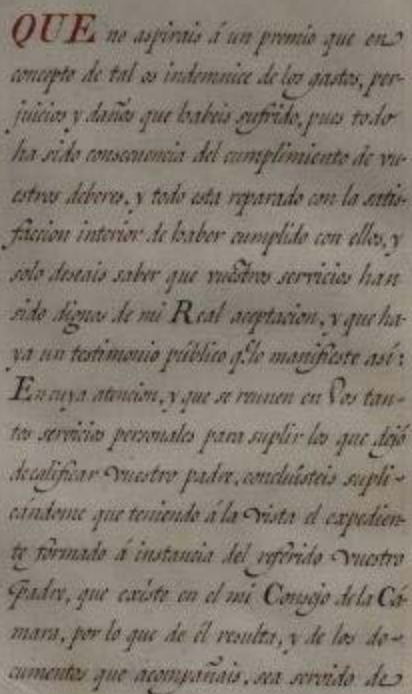 QUE no aspirais á un premio que en
concepto de tal os indemnice de los gastos, per-
juicios y daños que habeis sufrido, pues todo
ha sido consecuencia del cumplimiento de vu-
estros deberes, y todo esta reparado con la satis-
faccion interior de haber cumplido con ellos, y
solo deseais saber que vuestros servicios han
sido dignos de mi Real aceptacion, y que ha-
ya un testimonio público q.e lo manifieste así:
En cuya atencion, y que se reunen en Vos tan-
tos servicios personales para suplir los que dejó
de calificar vuestro padre, concluísteis supli-
cándome que teniendo á la vista el expedien-
te formado á instancia del referido vuestro
Padre, que existe en el mi Consejo de la Cá-
mara, por lo que de él resulta, y de los do-
cumentos que acompañais, sea servido de